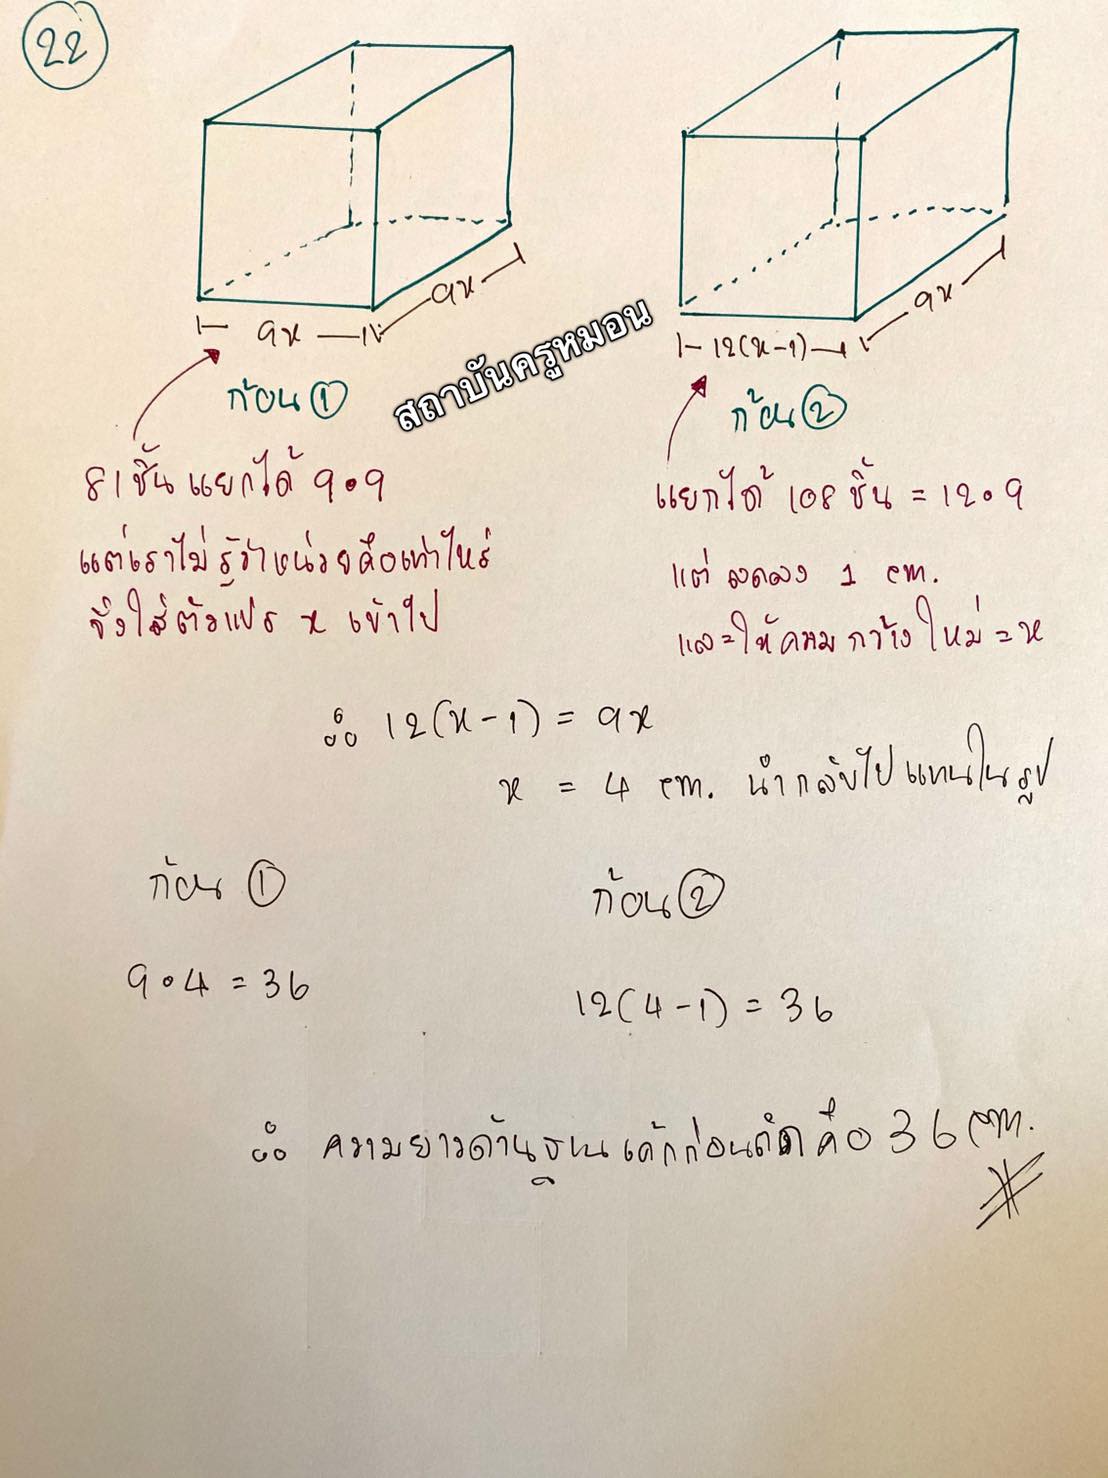 22
9x
9x
12(x-1)
9x
ก้อน ①
ก้อน ②
สถาบันครูหมอน
81 ชิ้น แยกได้ 9•9
แต่เราไม่รู้ว่าหน่วยคือเท่าไหร่
จึงใส่ตัวแปร x เข้าไป
แยกได้ 108 ชิ้น = 12•9
แต่ ลดลง 1 cm.
และให้ความกว้างใหม่ = x
∴ 12(x-1) = 9x
x = 4 cm. นำกลับไปแทนในรูป
ก้อน ①
ก้อน ②
9•4 = 36
12(4-1) = 36
∴ ความยาวด้านฐานเค้กก่อนตัดคือ 36 cm.